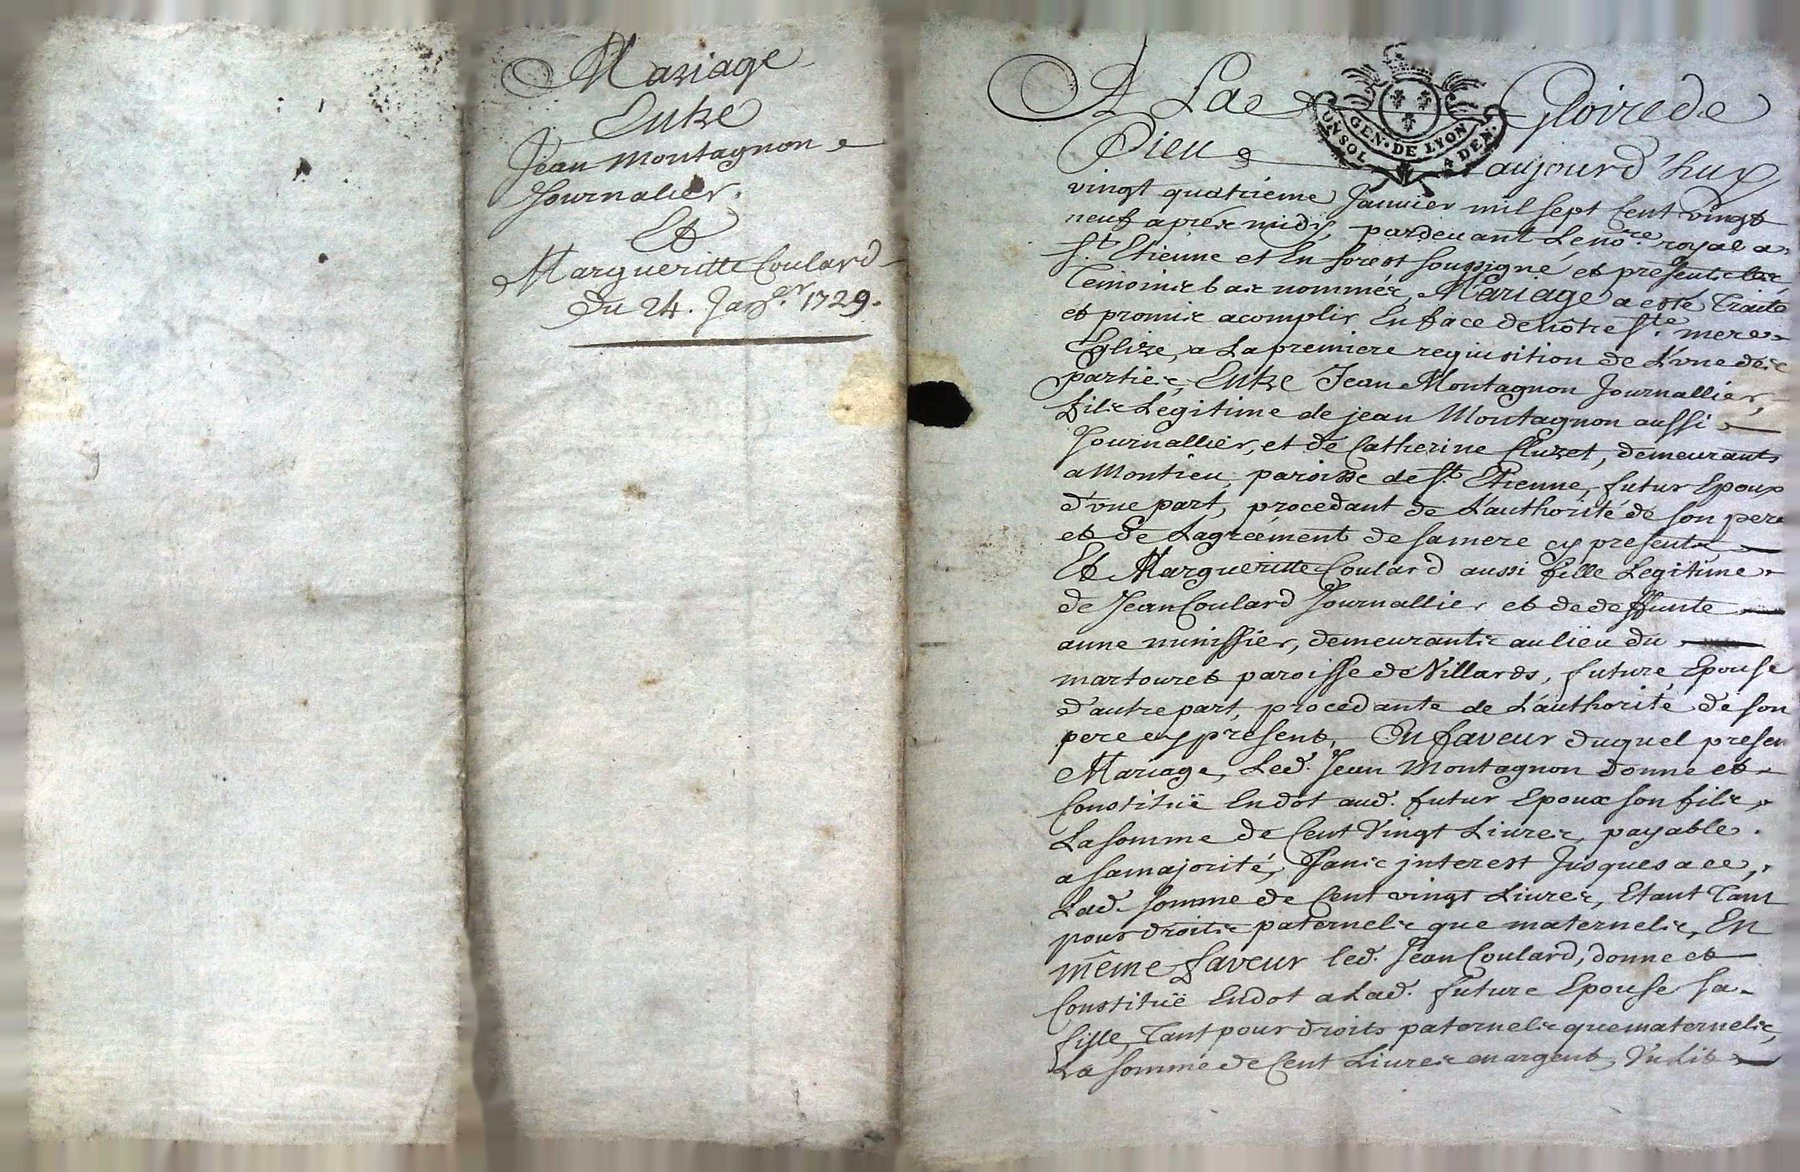 Mariage
Entre
Jean Montagnon
Journalier.
Et
Margueritte Coulard
Du 24. Janer. 1729.
A La Gloire de
GEN. DE LYON
UN SOL 4 DEN.
Dieu aujourd'huy
vingt quatrieme Janvier mil sept Cent vingt
neuf apres midy, pardevant Le nore. royal a
St. Etienne et En forest soussigné et presents les
Temoins bas nommés, Mariage a esté Traité
et promis acomplir En face de nôtre Ste. mere
Eglize, a La premiere requisition de L'vne des
parties, Entre Jean Montagnon Journallier,
fils Legitime de jean Montagnon aussi
Journallier, et de Catherine Cluzet, demeurants
a Montieu, paroisse de St. Etienne, futur Epoux
d'vne part, procedant de L'authorité de son pere
et de Lagréement de sa mere cy presents
Et Margueritte Coulard aussi fille Legitime
de Jean Coulard Journallier et de deffunte
anne minissier, demeurants au liëu du
martouret paroisse de Villards, future Epouse
d'autre part, procedante de L'authorité de son
pere cy present, En faveur duquel presen
Mariage, Led. Jean Montagnon donne et
Constituë En dot aud. futur Epoux son fils,
La somme de Cent Vingt Livres, payable
a sa majorité, sans jnterest Jusques a ce,
Lad. somme de Cent vingt Livres, Etant Tant
pour droits paternels que maternels, En
même faveur led. Jean Coulard, donne et
Constituë En dot a Lad. future Epouse sa
fille, Tant pour droits paternels que maternels,
La somme de Cent Livres en argent, Vn Lit